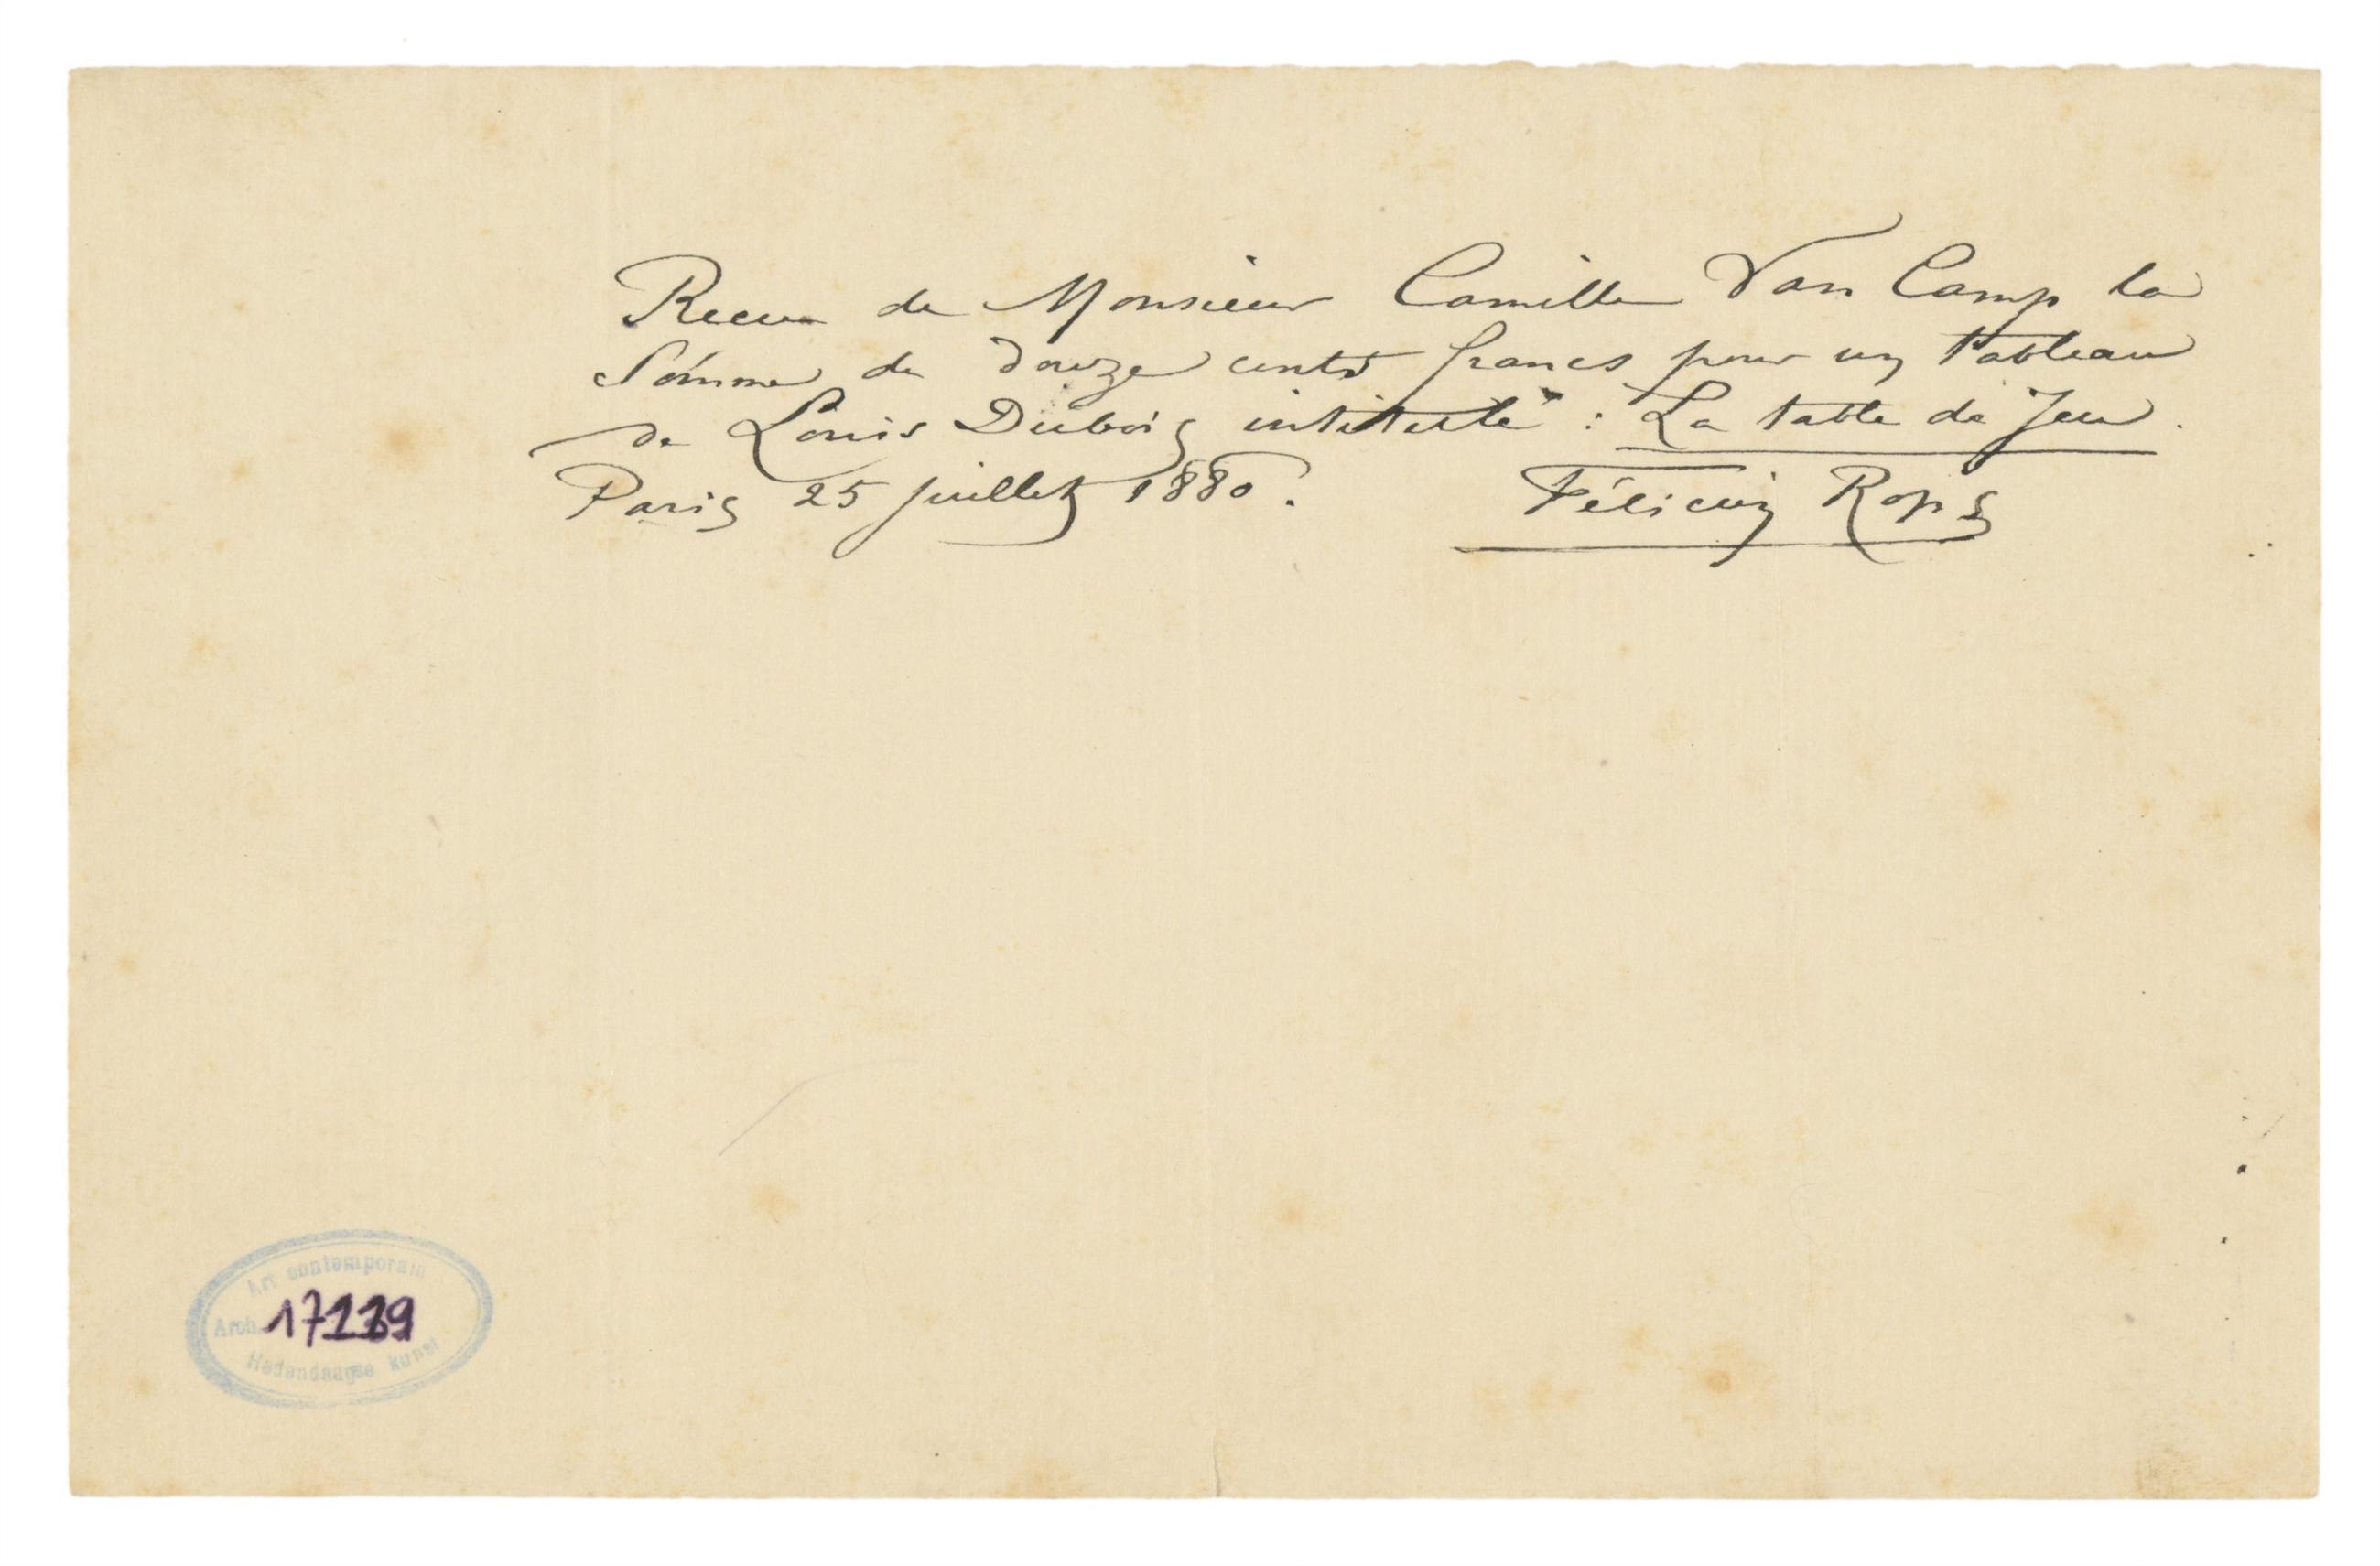 Recu de Monsieur Camille Van Camp la
Somme de douze cents francs pour un tableau
de Louis Dubois intitulé : La table de Jeu.
Paris 25 juillet 1880. Félicien Rops
Art contemporain
Arch.
Hedendaagse kunst